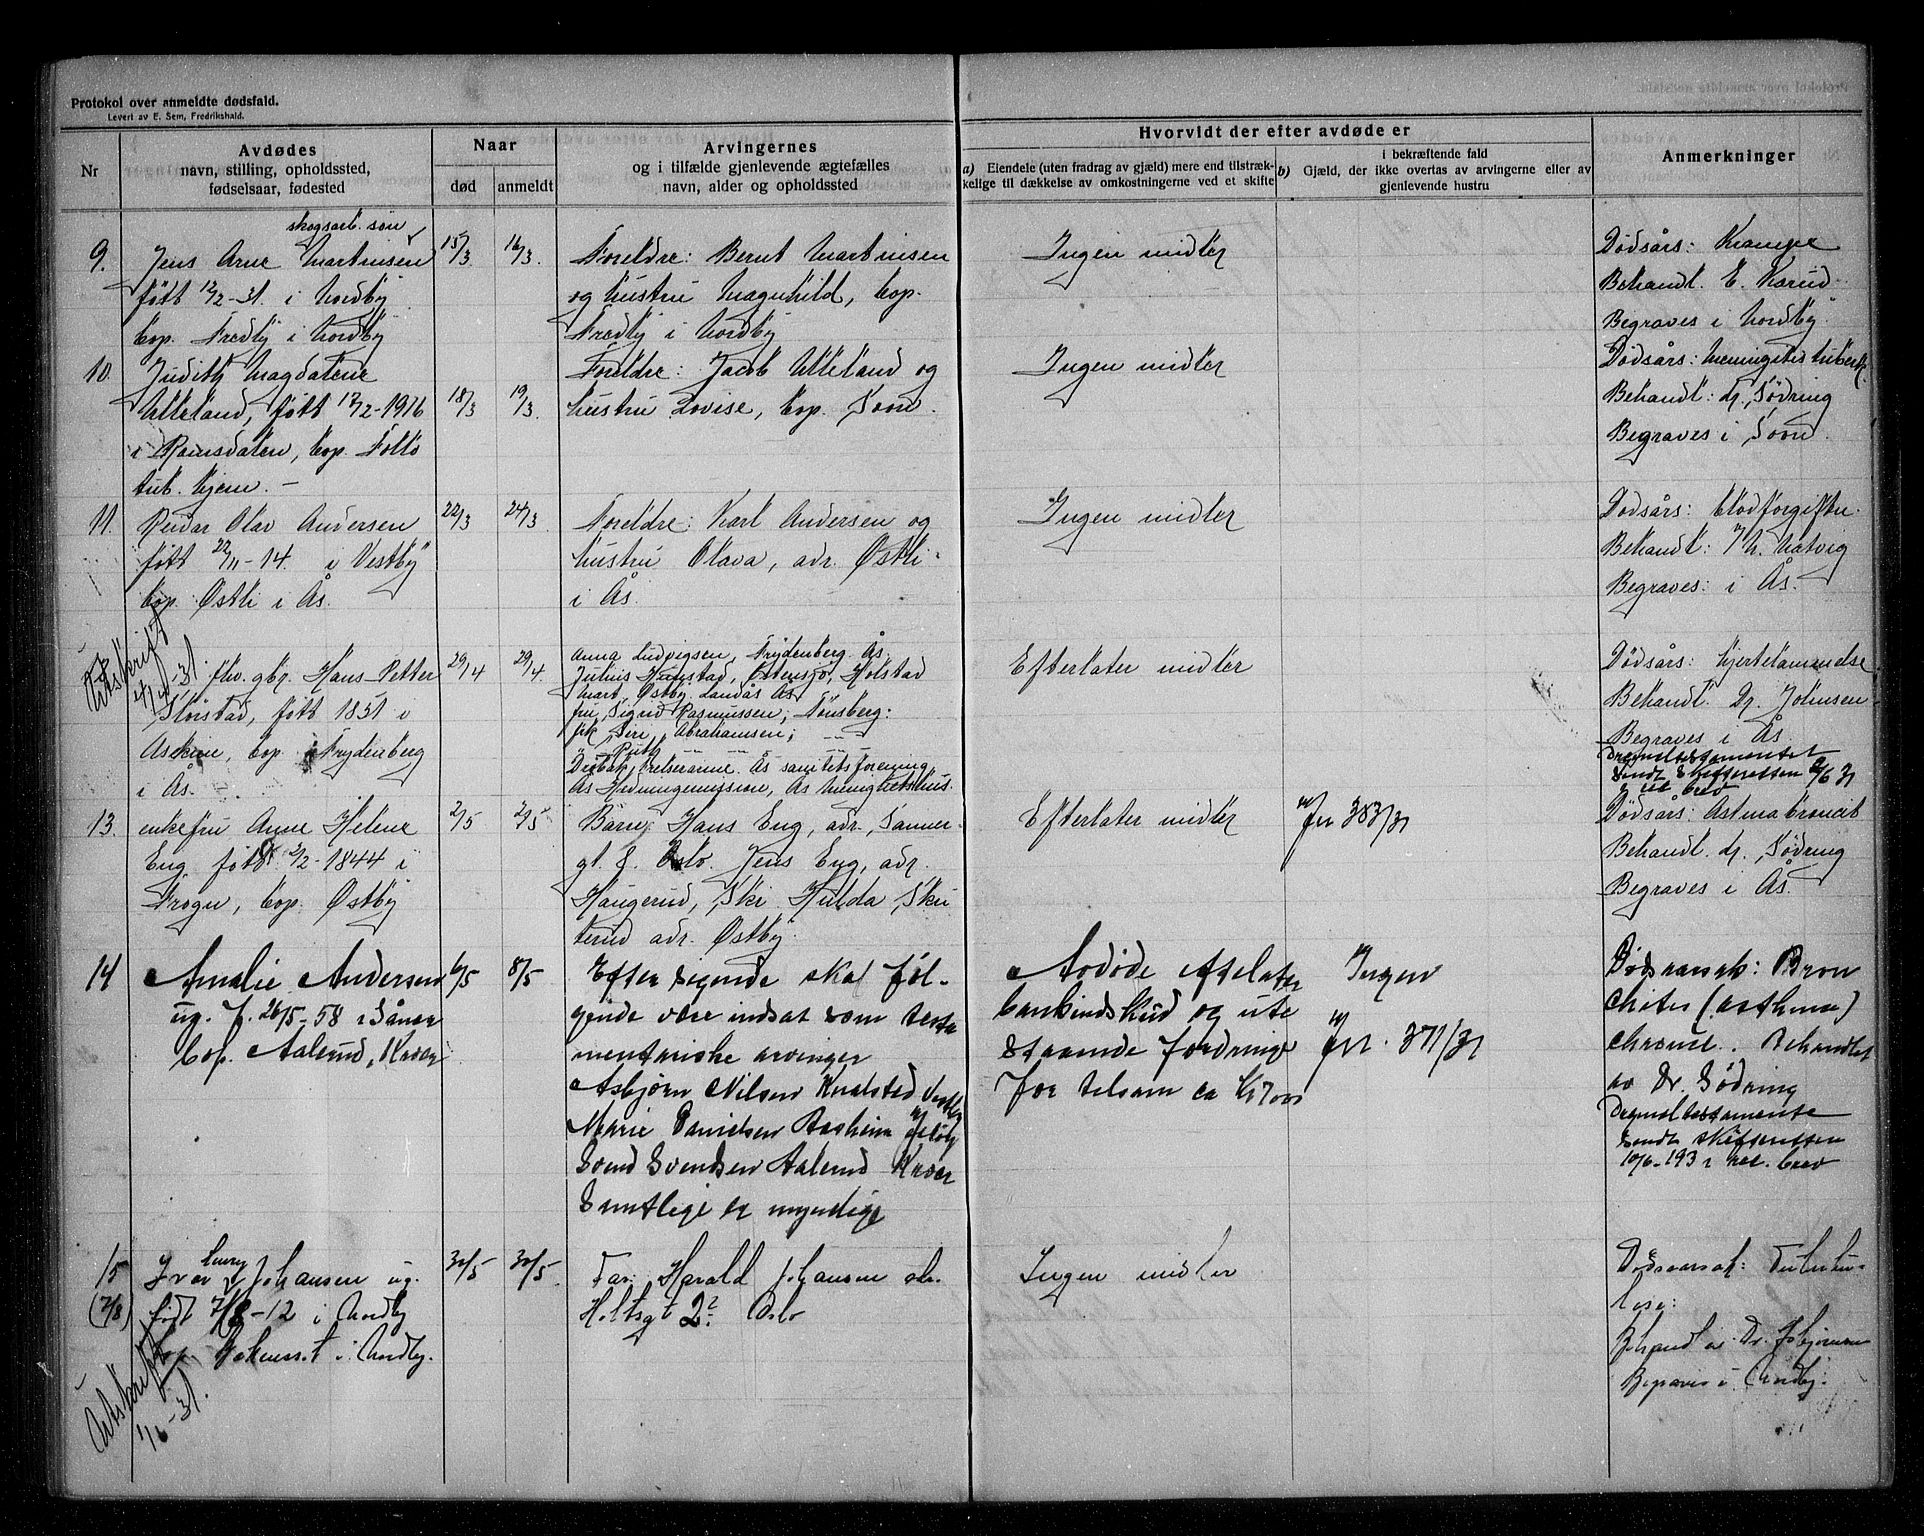 Protokol over anmeldte dødsfald.
Levert av E. Sem, Fredrikshald.
Nr
Avdødes
navn, stilling, opholdssted,
fødselsaar, fødested
Naar
død
anmeldt
Arvingernes
og i tilfælde gjenlevende ægtefælles
navn, alder og opholdssted
Hvorvidt der efter avdøde er
a) Eiendele (uten fradrag av gjæld) mere end tilstræk-
kelige til dækkelse av omkostningerne ved et skifte
i bekræftende fald
b) Gjæld, der ikke overtas av arvingerne eller av
gjenlevende hustru
Anmerkninger
9.
skogsarb. søn
Jens Arne Martinsen
født 12/2-31. i Nordby
bop. Fredly i Nordby
15/3
16/3.
Foreldre: Bernt Martinsen
og hustru Magnhild, bop.
Fredly i Nordby
Ingen midler
Dødsårs: Krampe
Behandl. E. Karud
Begraves i Nordby
10.
Judith Magdalene
Ulleland, født 17/2-1916
i Romsdalen, bop. Follo
tub. hjem. -
18/3
19/3.
Foreldre: Jacob Ulleland og
hustru Lovise, bop. Soon.
Ingen midler
Dødsårs: Meningitis tuberk.
Behandl: dr. Sødring
Begraves i Soon.
11.
Reidar Olav Andersen
født 22/11-14. i Vestby
bop. Østli i Ås.
22/3
24/3
Foreldre: Karl Andersen og
hustru Olava, adr. Østli
i Ås.
Ingen midler
Dødsårs: blodforgiftn.
Behandl: Th. Natvig
Begraves: i Ås.
Utskrift
4/12-31.
fhv. gbr. Hans Petter
Slorstad, født 1851 i
Askim, bop. Frydenberg
i Ås.
29/4
29/4.
Anna Ludvigsen, Frydenberg Ås.
Julius Hunstad, Østensjø, Holstad
Mart. Østby Landås Ås
fru Sigrid Rasmussen, Tønsberg:
frk Siri Abrahamsen,
" Ruth
Drøbak, Frelsesarme. Ås sanitetsforening
Ås Hedningemisjon, Ås Menighetshus.
Efterlater midler
Dødsårs: hjertelammelse
Behandl. Dr. Johnsen
Begraves i Ås.
Originaltestamentet
sendt Skifteretten 2/6 31
i rek. brev
13.
enkefru Anne Helene
Eng født 2/2-1844 i
Frogn, bop. Østby
2/5
2/5
Barn: Hans Eng, adr. Sanner-
gt. 8. Oslo. Jens Eng, adr.
Haugerud, Ski Hulda Sku
terud adr. Østby.
Efterlater midler
Jnr 383/31
Dødsårs: Astma broncit
Behandl. dr. Sødring
Begraves i Ås.
14
Amalie Andersen
ug. f. 26/5-58 i Såner
bop. Aalerud, Kroer
6/5
8/5
Efter sigende skal føl-
gende være indsat som testa
mentariske arvinger
Asbjørn Nilsen Knalstad Vestby
Marie Danielsen Aasheim Jeløy
Svend Svendsen Aalerud Kroer
Samtlige er myndige
Avdøde efterlater
bankindskud og ute
staaende fordringe
for tilsam ca Kr 7000
Ingen
Jnr. 371/31
Dødsaarsak: Bron
chites (asthma)
chronic. Behandlet
av Dr. Sødring
Originaltestamente
sendt skifteretten
10/6-1931 rek. brev
15
(7/8)
Ivar Henry Johansen ug.
født 7/8-12 i Nordby
bop. i Nordby.
30/5
30/5.
Far Harald Johansen adr.
Holtsgt 2? Oslo
Ingen midler
Dødsaarsak: Tuberku-
lose:
Behandl av Dr.
Begraves i Nordby.
Utskrift
1/6-31.